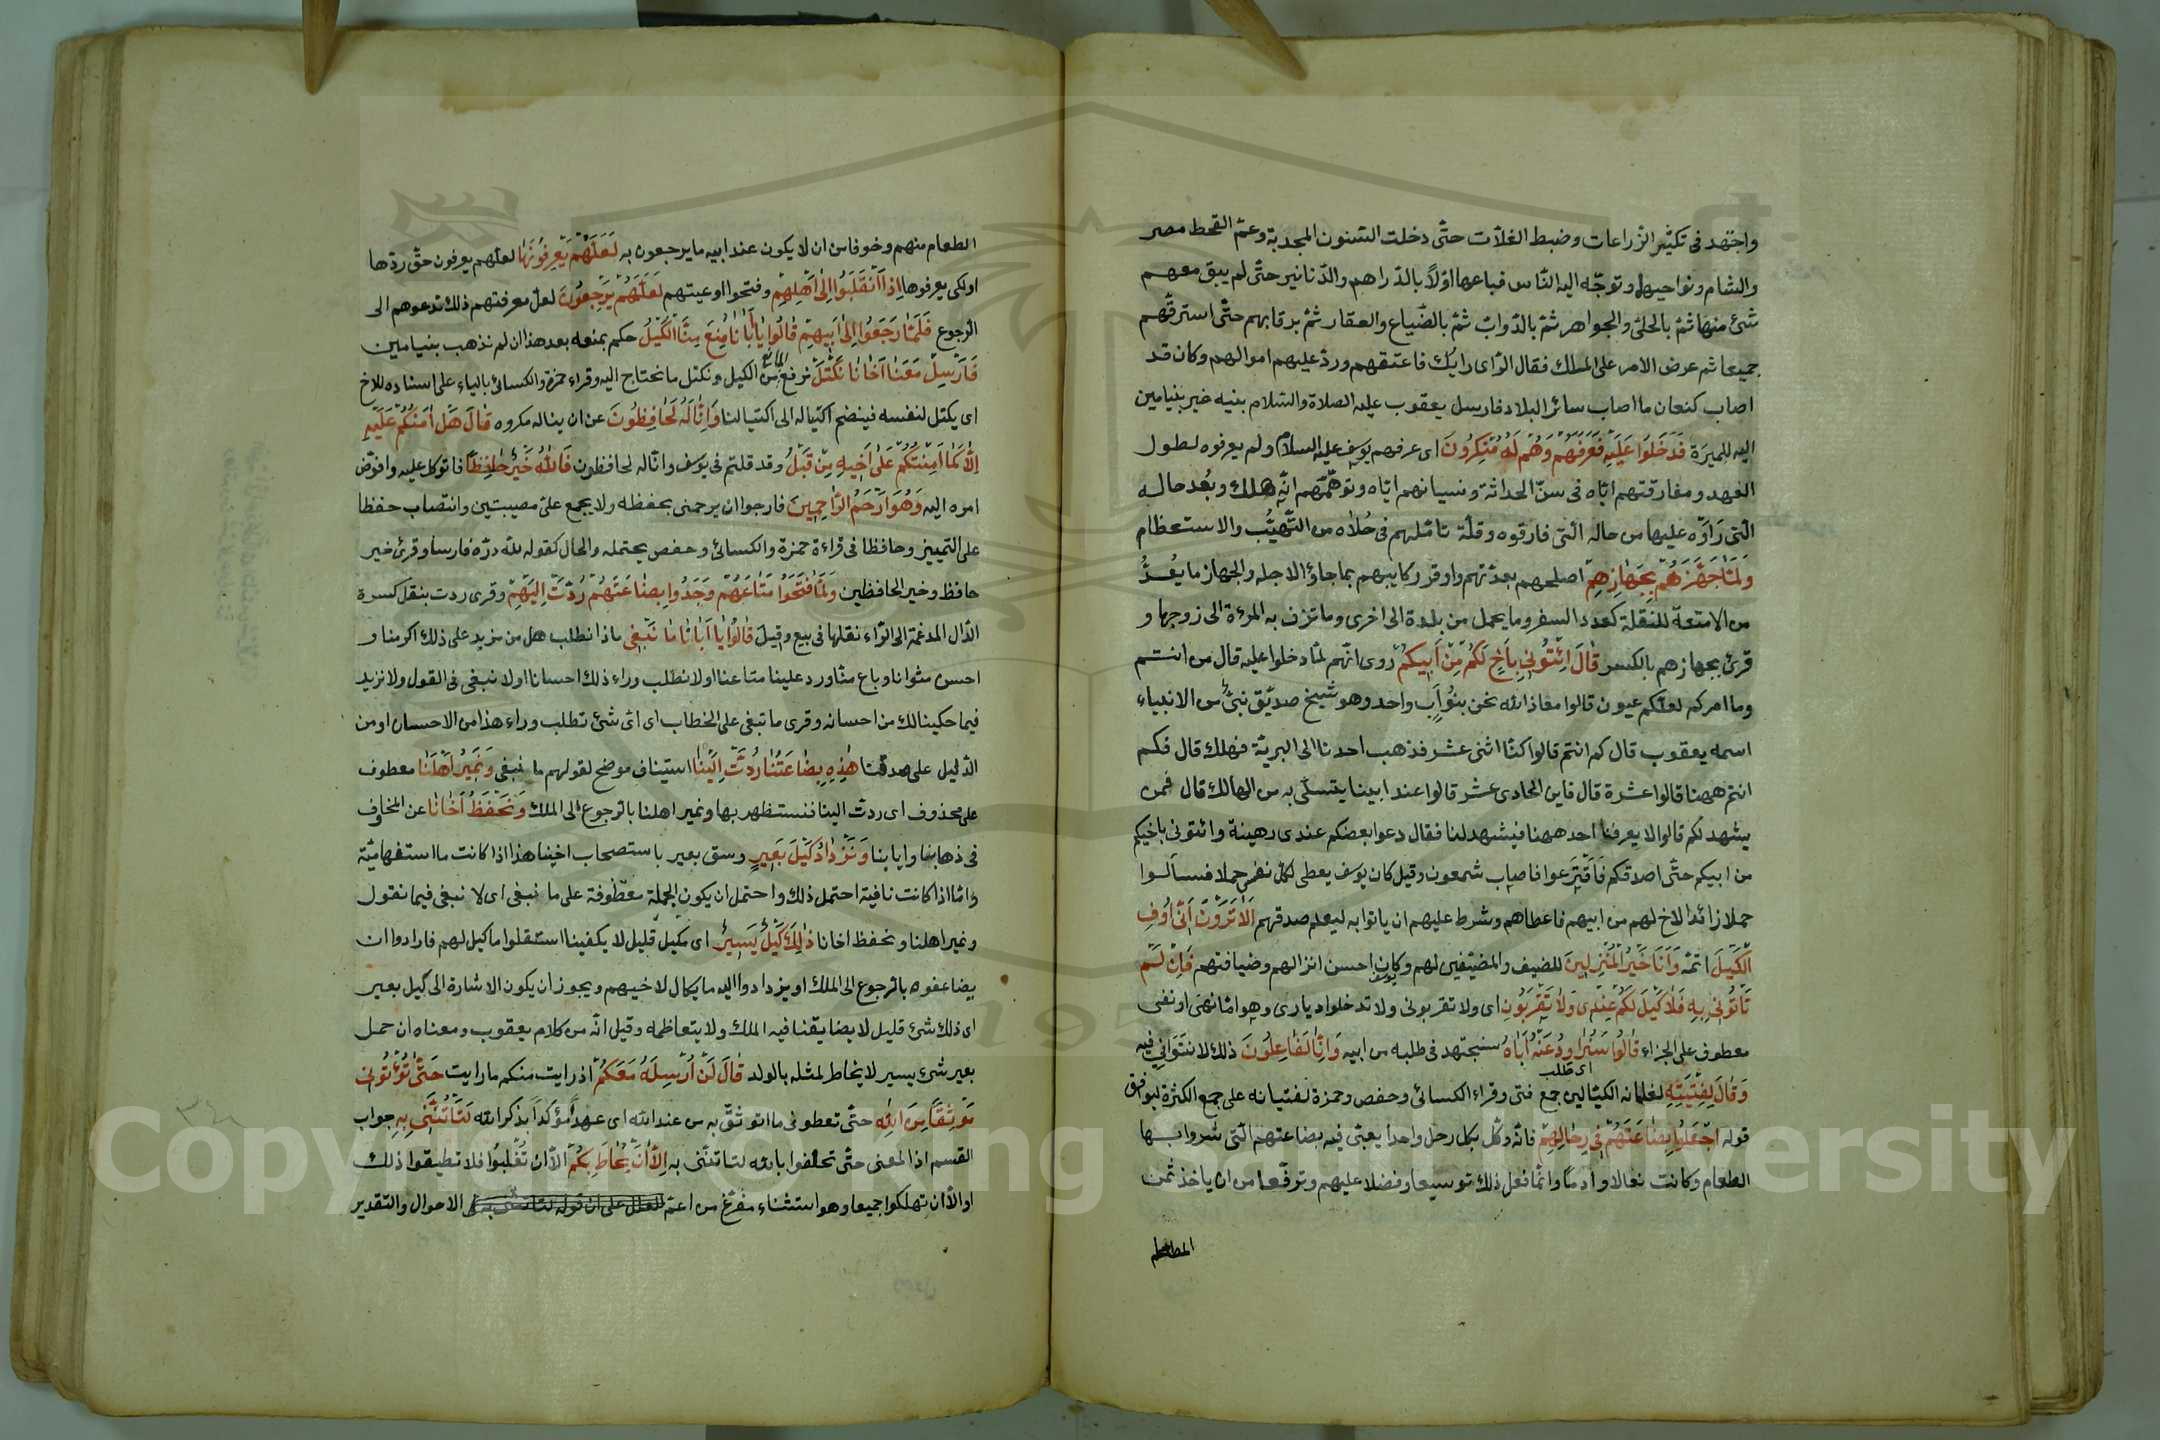 واجتهد فى تكثير الزراعات وضبط الغلات حتى دخلت السنون المجدبة وعم القحط مصر
والشام ونواحيها وتوجه اليه الناس فباعها اولا بالدراهم والدنانير حتى لم يبق معهم
شئ منها ثم بالحلى والجواهر ثم بالدواب ثم بالضياع والعقار ثم برقابهم حتى استرقهم
جميعا ثم عرض الامر على الملك فقال الراى رايك فاعتقهم ورد عليهم اموالهم وكان قد
اصاب كنعان ما اصاب سائر البلاد فارسل يعقوب عليه الصلاة والسلام بنيه غير بنيامين
اليه للميرة فَدَخَلُوا عَلَيْهِ فَعَرَفَهُمْ وَهُمْ لَهُ مُنْكِرُونَ اى عرفهم يوسف عليه السلام ولم يعرفوه لطول
العهد ومفارقتهم اياه فى سن الحداثة ونسيانهم اياه وتوهمهم انه هلك وبُعد حاله
التى رَاَوه عليها من حاله التى فارقوه وقلة تاملهم فى حُلاه من التَّهيُّب والاستعظام
وَلَمَّا جَهَّزَهُمْ بِجَهَازِهِمْ اصلحهم بعدتهم واوقر ركايبهم بما جاؤا لاجله والجهاز ما يُعدُّ
من الامتعة للنقلة كعدد السفر وما يحمل من بلدة الى اخرى وما تزف به المرءة الى زوجها و
قرئ بجهازهم بالكسر قَالَ ائْتُونِى بِأَخٍ لَكُمْ مِنْ أَبِيكُمْ روى انهم لما دخلوا عليه قال من انتم
وما امركم لعلكم عيون قالوا معاذ الله نحن بنو أبٍ واحد وهو شيخ صديق نبى من الانبياء
اسمه يعقوب قال كم انتم قالوا كنا اثنى عشر فذهب احدنا الى البرية فهلك قال فكم
انتم ههنا قالوا عشرة قال فاين الحادى عشر قالوا عند ابينا يتسلى به من الهالك قال فمن
يشهد لكم قالوا لا يعرفنا احد ههنا فيشهد لنا فقال دعوا بعضكم عندى رهينة وائتونى باخيكم
من ابيكم حتى اصدقكم فَاقْتَرَعوا فاصاب شمعون وقيل كان يوسف يعطى لكل نفس حملا فسألوا
حملا زائدا لاخ لهم من ابيهم فاعطاهم وشرط عليهم ان ياتوا به ليعلم صدقهم اَلَا تَرَوْنَ اَنِّى اُوفِ
الْكَيْلَ اتمه وَاَنَا خَيْرُ الْمُنْزِلِينَ للضيف والمضيفين لهم وكان احسن انزالهم وضيافتهم فَاِنْ لَمْ
تَأْتُونِى بِهِ فَلَا كَيْلَ لَكُمْ عِنْدِى وَلَا تَقْرَبُونِ اى ولا تقربونى ولا تدخلوا ديارى وهو اما نهى او نفى
معطوف على الجزاء قَالُوا سَنُرَاوِدُ عَنْهُ اَبَاهُ سنجتهد فى طلبه من ابيه وَاِنَّا لَفَاعِلُونَ ذلك لا نتوانى فيه
وَقَالَ لِفِتْيَتِهِ لغلمانه الكيالين جمع فتى وقراء الكسائى وحفص وحمزة لفتيانه على جمع الكثرة ليوافق
قوله اجْعَلُوا بِضَاعَتَهُمْ فِى رِحَالِهِمْ فانه وكّل بكل رحل واحداً يعبى فيه بضاعتهم التى شروا بها
الطعام وكانت نعالا وادما وانما فعل ذلك توسيعا وفضلا عليهم وترفّعا من ان ياخذ ثمن
الطعام منهم وخوفا من ان لا يكون عند ابيه ما يرجعون به لَعَلَّهُمْ يَعْرِفُونَهَا لعلهم يعرفون حق ردها
او لكى يعرفوها اِذَا انْقَلَبُوا اِلَى اَهْلِهِمْ وفتحوا اوعيتهم لَعَلَّهُمْ يَرْجِعُونَ لعل معرفتهم ذلك تدعوهم الى
الرجوع فَلَمَّا رَجَعُوا اِلَى اَبِيهِمْ قَالُوا يَا اَبَانَا مُنِعَ مِنَّا الْكَيْلُ حكم بمنعه بعد هذا ان لم نذهب بنيامين
فَاَرْسِلْ مَعَنَا اَخَانَا نَكْتَلْ نرفع المانع من الكيل ونكتل ما نحتاج اليه وقراء حمزة والكسائى بالياء على اسناده للاخ
اى يكتل لنفسه فينضم اكتياله الى اكتيالنا وَاِنَّا لَهُ لَحَافِظُونَ عن ان يناله مكروه قَالَ هَلْ اَمَنُكُمْ عَلَيْهِ
اِلَّا كَمَا اَمِنْتُكُمْ عَلَى اَخِيهِ مِنْ قَبْلُ وقد قلتم فى يوسف وانا له لحافظون فَاللّهُ خَيْرٌ حَافِظًا فاتوكل عليه وافوض
امره اليه وَهُوَ اَرْحَمُ الرَّاحِمِينَ فارجوا ان يرحمنى بحفظه ولا يجمع علىّ مصيبتين وانتصاب حفظا
على التمييز وحافظا فى قراءة حمزة والكسائى وحفص يحتمله والحال كقوله لله دره فارسا وقرئ خير
حافظ وخير الحافظين وَلَمَّا فَتَحُوا مَتَاعَهُمْ وَجَدُوا بِضَاعَتَهُمْ رُدَّتْ اِلَيْهِمْ وقرى ردت بنقل كسرة
الدال المدغمة الى الراء نقلها فى بيع وقيل قَالُوا يَا اَبَانَا مَا نَبْغِى ماذا نطلب هل من مزيد على ذلك اكرمنا و
احسن مثوانا وباع منا ورد علينا متاعنا او لا نطلب وراء ذلك احسانا او لا نبغى فى القول ولا نزيد
فيما حكينا لك من احسانه وقرى ما تبغى على الخطاب اى اى شئ تطلب وراء هذا من الاحسان او من
الدليل على صدقنا هَذِهِ بِضَاعَتُنَا رُدَّتْ اِلَيْنَا استيناف موضح لقولهم ما نبغى وَنَمِيرُ اَهْلَنَا معطوف
على محذوف اى ردت الينا فنستظهر بها ونمير اهلنا بالرجوع الى الملك وَنَحْفَظُ اَخَانَا عن المخاوف
فى ذهابنا وايابنا وَنَزْدَادُ كَيْلَ بَعِيرٍ وسق بعير باستصحاب اخينا هذا اذا كانت ما استفهامية
واما اذا كانت نافية احتمل ذلك واحتمل ان يكون الجملة معطوفة على ما نبغى اى لا نبغى فيما نقول
ونمير اهلنا ونحفظ اخانا ذَلِكَ كَيْلٌ يَسِيرٌ اى مكيل قليل لا يكفينا استقلوا ما كيل لهم فارادوا ان
يضاعفوه بالرجوع الى الملك او يزدادوا اليه ما يكال لاخيهم ويجوز ان يكون الاشارة الى كيل بعير
اى ذلك شئ قليل لا يضايقنا فيه الملك ولا يتعاظمه وقيل انه من كلام يعقوب ومعناه ان حمل
بعير شئ يسير لا يخاطر لمثله بالولد قَالَ لَنْ اُرْسِلَهُ مَعَكُمْ اذ رايت منكم ما رايت حَتَّى تُؤْتُونِ
مَوْثِقًا مِنَ اللّهِ حتى تعطونى ما اتوثق به من عند الله اى عهداً مؤكداً بذكر الله لَتَأْتُنَّنِى بِهِ جواب
القسم اذ المعنى حتى تحلفوا بالله لتاتننى به اِلَّا اَنْ يُحَاطَ بِكُمْ الا ان تُغْلَبُوا فلا تطيقوا ذلك
او الا ان تهلكوا جميعا وهو استثناء مفرغ من اعم الاحوال والتقدير
Copyright © King Saud University